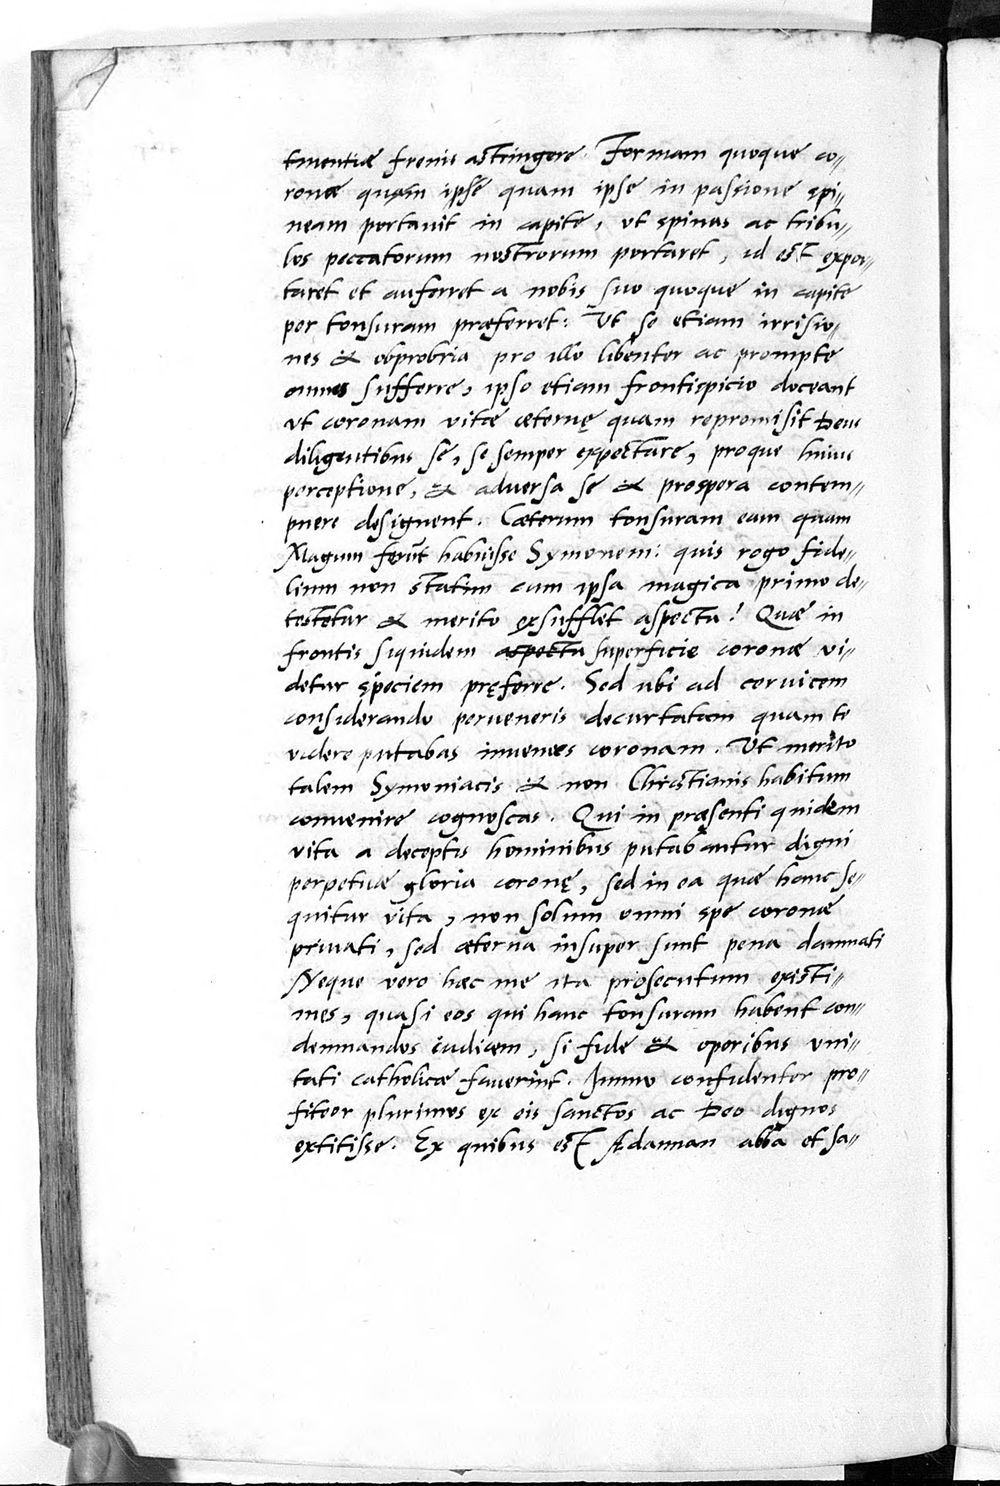 tinentiæ frenis astringere. Formam quoque co„
ronæ quam ipse quam ipse in passione spi„
neam portauit in capite, ut spinas ac tribu„
los peccatorum nostrorum portaret, id est expor„
taret et auferret a nobis suo quoque in capite
per tonsuram præferret: Ut se etiam irrisio„
nes & obprobria pro illo libenter ac prompte
omnes sufferre, ipso etiam frontispicio doceant
ut coronam vitæ æternę quam repromisit Deus
diligentibus se, se semper expectare, proque huius
perceptione, & adversa se & prospera contem„
pnere designent. Cæterum tonsuram eam quam
Magum ferūt habuisse Symonem: quis rogo fide„
lium non statim cum ipsa magica primo de„
testetur & merito exsufflet aspecta? Quæ in
frontis siquidem aspecta superficie coronæ vi„
detur speciem pręferre. Sed ubi ad cervicem
considerando perveneris decurtatam quam te
videre putabas invenies coronam. Ut merito
talem Symoniacis & non Christianis habitum
convenire cognoscas. Qui in præsenti quidem
vita a deceptis hominibus putabantur digni
perpetuæ gloria coronę, sed in ea quæ hanc se„
quitur vita, non solum omni spe coronæ
privati, sed æterna insuper sunt pena damnati
Neque vero hæc me ita prosecutum existi„
mes, quasi eos qui hanc tonsuram habent con„
demnandos iudicem, si fide & operibus uni„
tati catholicæ faverint. Immo confidenter pro„
fiteor plurimos ex eis sanctos ac Deo dignos
extitisse. Ex quibus est Adamnan abba et sa„